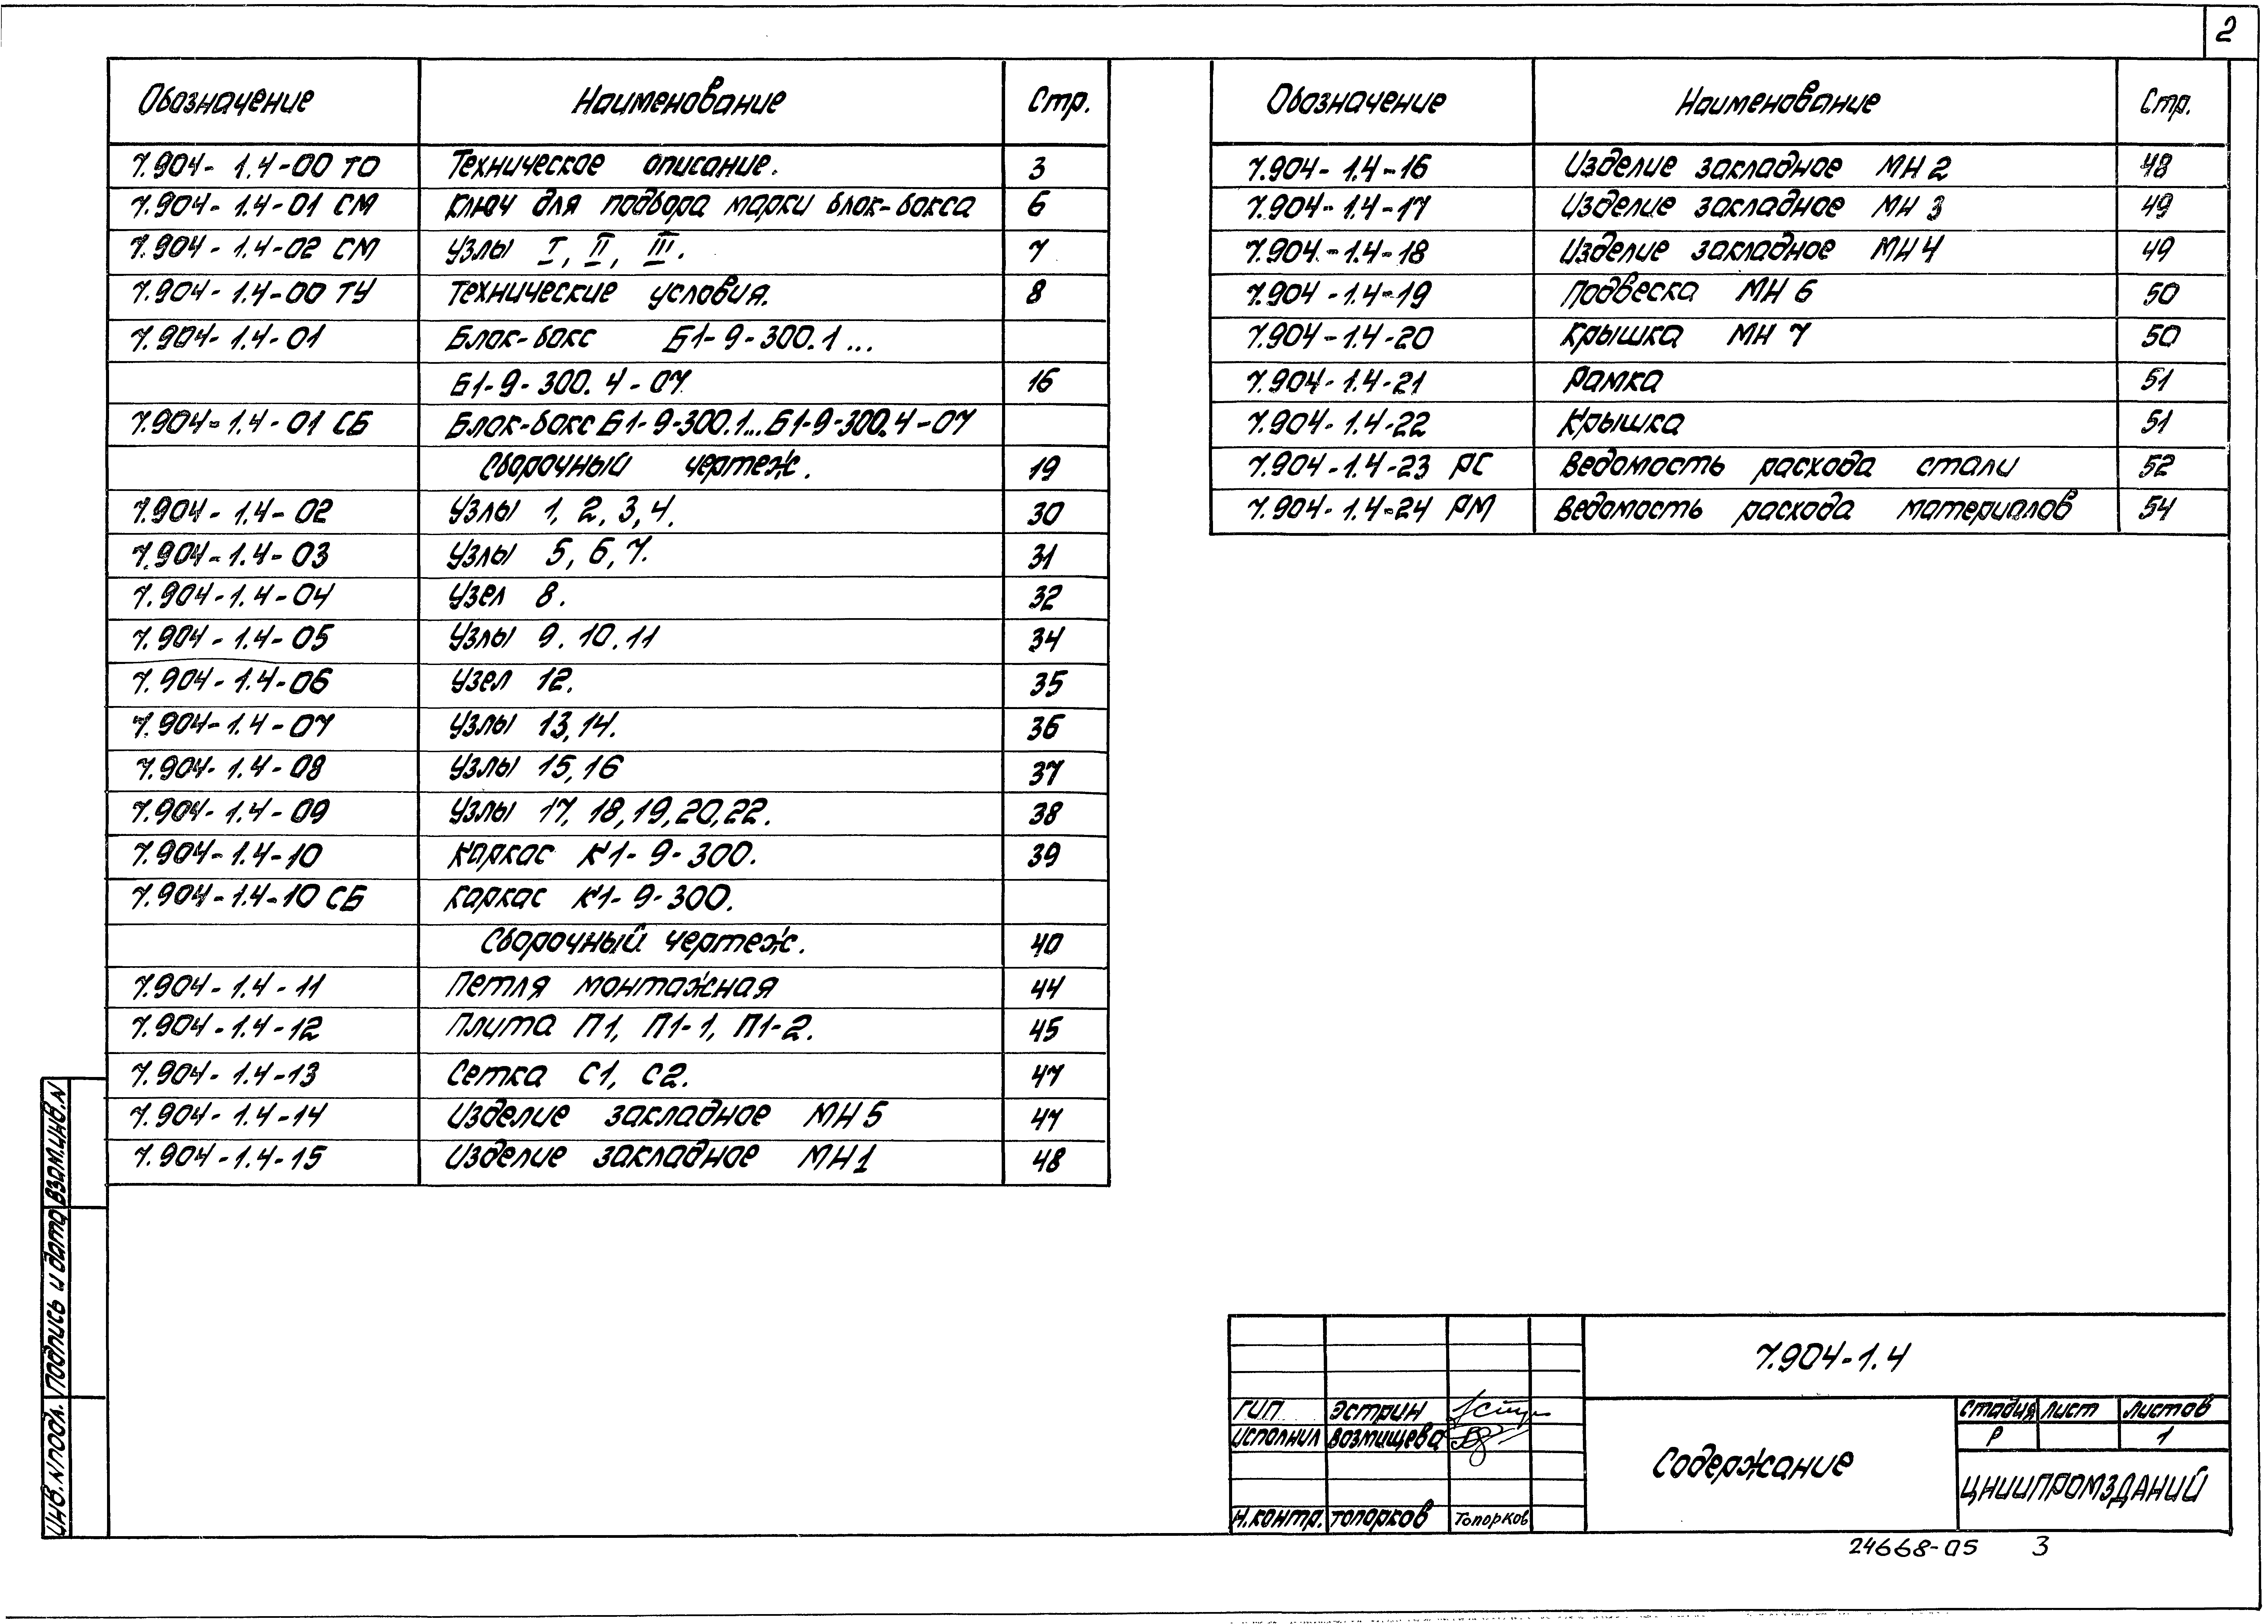 2
Обозначение Наименование Стр.
7.904-1.4-00 ТО Техническое описание. 3
7.904-1.4-01 СМ Ключ для подбора марки блок-бокса 6
7.904-1.4-02 СМ Узлы I, II, III. 7
7.904-1.4-00 ТУ Технические условия. 8
7.904-1.4-01 Блок-бокс Б1-9-300.1...
Б1-9-300.4-07. 16
7.904-1.4-01 СБ Блок-бокс Б1-9-300.1...Б1-9-300.4-07
Сборочный чертеж. 19
7.904-1.4-02 Узлы 1, 2, 3, 4. 30
7.904-1.4-03 Узлы 5, 6, 7. 31
7.904-1.4-04 Узел 8. 32
7.904-1.4-05 Узлы 9. 10. 11 34
7.904-1.4-06 Узел 12. 35
7.904-1.4-07 Узлы 13, 14. 36
7.904-1.4-08 Узлы 15, 16 37
7.904-1.4-09 Узлы 17, 18, 19, 20, 22. 38
7.904-1.4-10 Каркас К1-9-300. 39
7.904-1.4-10 СБ Каркас К1-9-300.
Сборочный чертеж. 40
7.904-1.4-11 Петля монтажная 44
7.904-1.4-12 Плита П1, П1-1, П1-2. 45
7.904-1.4-13 Сетка С1, С2. 47
7.904-1.4-14 Изделие закладное МН5 47
7.904-1.4-15 Изделие закладное МН1 48
Обозначение Наименование Стр.
7.904-1.4-16 Изделие закладное МН2 48
7.904-1.4-17 Изделие закладное МН3 49
7.904-1.4-18 Изделие закладное МН4 49
7.904-1.4-19 Подвеска МН6 50
7.904-1.4-20 Крышка МН7 50
7.904-1.4-21 Рамка 51
7.904-1.4-22 Крышка 51
7.904-1.4-23 РС Ведомость расхода стали 52
7.904-1.4-24 РМ Ведомость расхода материалов 54
Взам.инв.N
Подпись и дата
Инв.N подл.
7.904-1.4
ГИП Эстрин
Исполнил Возмищева
Н.контр. Топорков Топорков
Содержание
Стадия Лист Листов
Р 1
ЦНИИПРОМЗДАНИЙ
24668-05 3